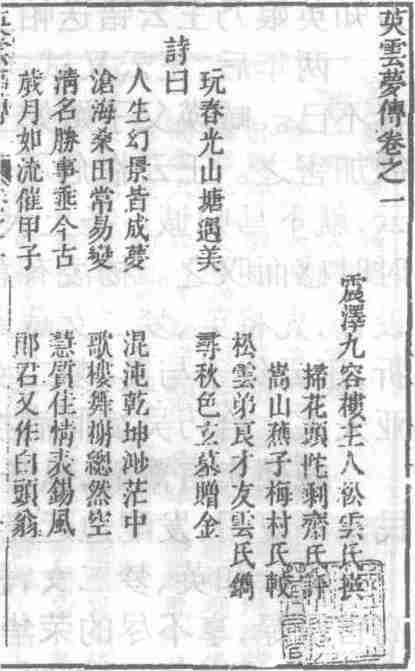 英雲夢傳卷之一
震澤九容樓主人松雲氏撰
掃花頭陀剩齋氏評
嵩山蕉子梅村氏較
松雲弟良才友雲氏鐫
玩春光山塘遇美　尋秋色玄墓贈金
詩曰
人生幻景皆成夢　混沌乾坤渺茫中
滄海桑田常易變　歌樓舞榭總然空
清名勝事垂今古　慧質佳情表錫風
歲月如流催甲子　郎君又作白頭翁